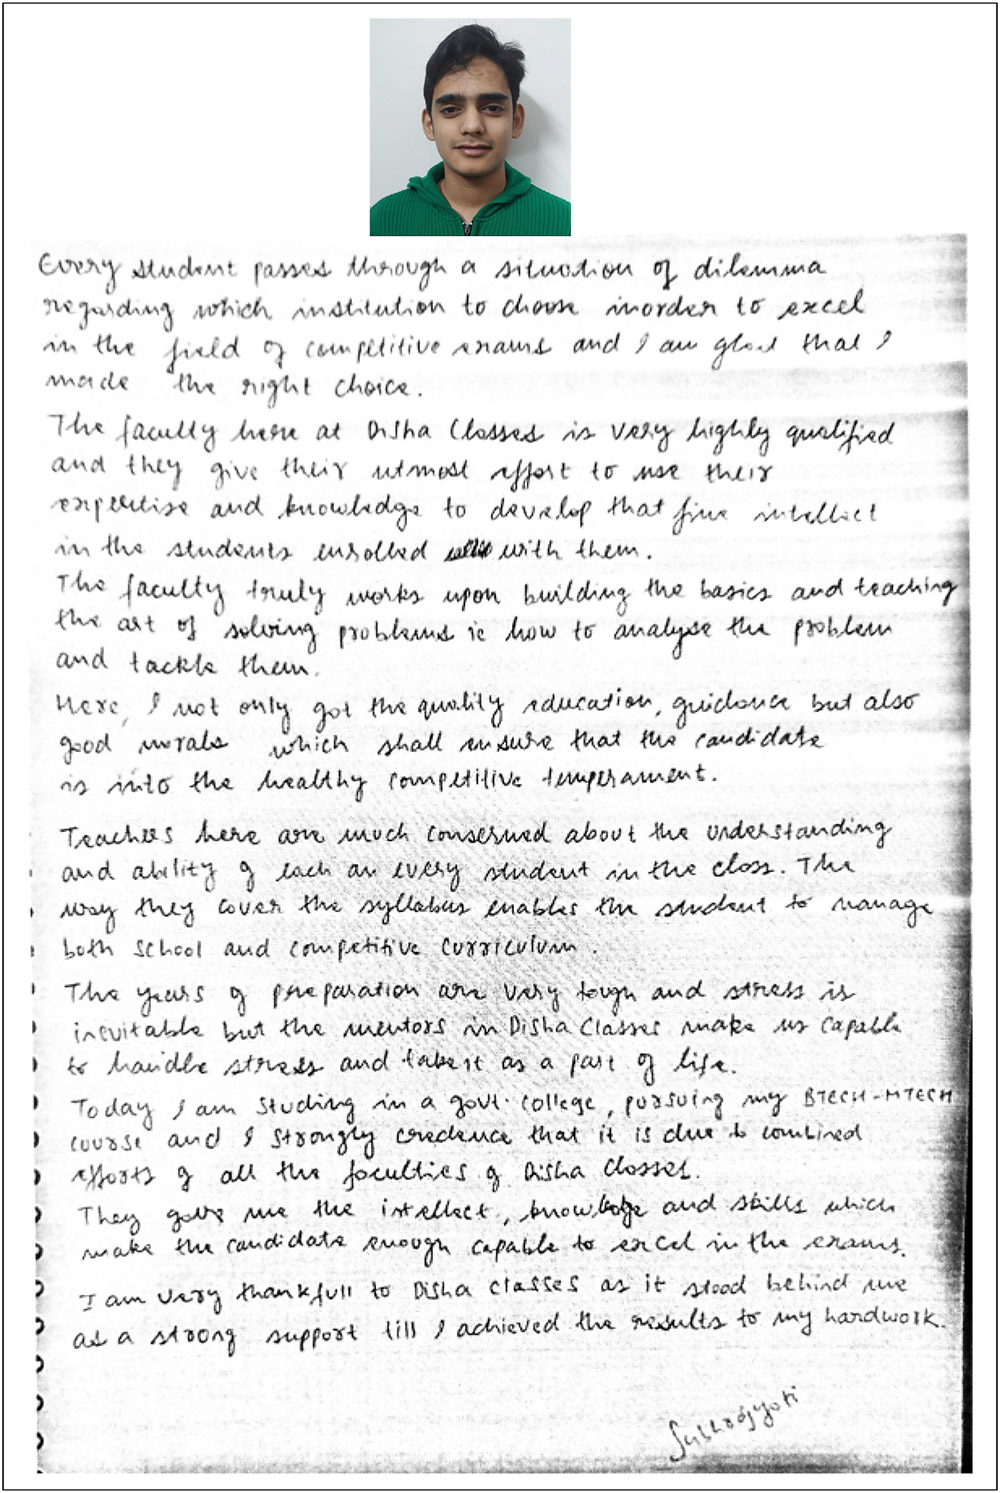 Every student passes through a situation of dilemma
regarding which institution to choose inorder to excel
in the field of competitive exams and I am glad that I
made the right choice.
The faculty here at Disha Classes is very highly qualified
and they give their utmost effort to use their
expertise and knowledge to develop that fine intellect
in the students enrolled with them.
The faculty truly works upon building the basics and teaching
the art of solving problems ie how to analyse the problem
and tackle them.
Here, I not only got the quality education, guidance but also
good morals which shall ensure that the candidate
is into the healthy competitive temperament.
Teachers here are much conserned about the understanding
and ability of each an every student in the class. The
way they cover the syllabus enables the student to manage
both school and competitive curriculum.
The years of preparation are very tough and stress is
inevitable but the mentors in Disha Classes make us capable
to handle stress and take it as a part of life.
Today I am studing in a govt. college, pursuing my BTECH-MTECH
course and I strongly credence that it is due to combined
efforts of all the faculties of Disha Classes.
They gave me the intellect, knowledge and skills which
make the candidate enough capable to excel in the exams.
I am very thankfull to Disha classes as it stood behind me
as a strong support till I achieved the results to my hardwork.